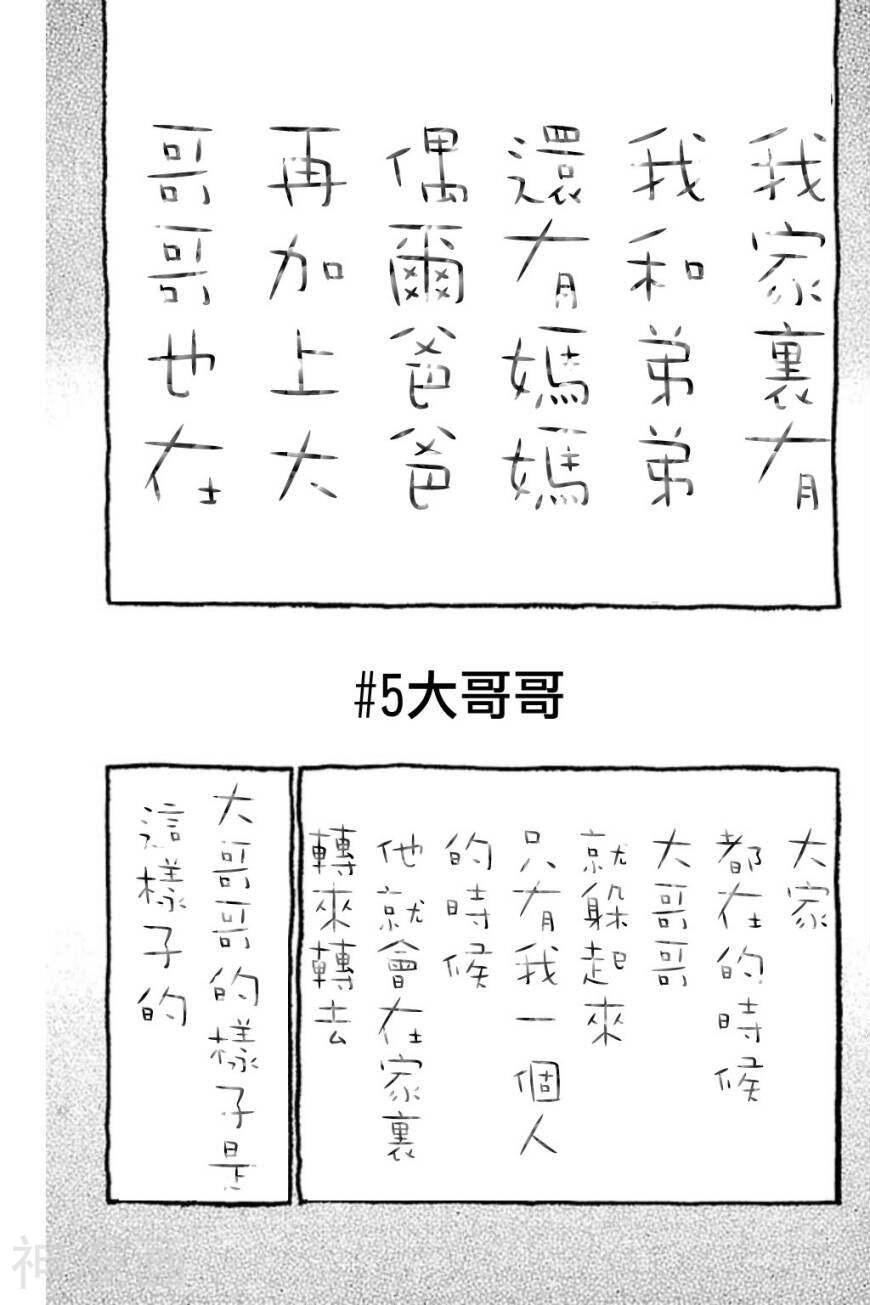 我家裏有
我和弟弟
還有媽媽
偶爾爸爸
再加上大
哥哥也在
#5大哥哥
大家
都在的時候
大哥哥
就躲起來
只有我一個人
的時候
他就會在家裏
轉來轉去
大哥哥的樣子是
這樣子的